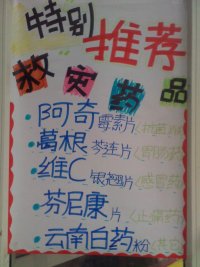 特别
推荐
救灾药品
阿奇霉素片(抗菌
葛根芩连片(胃肠药)
维C银翘片(感冒药)
芬尼康片(止痛药)
云南白药粉(其它)